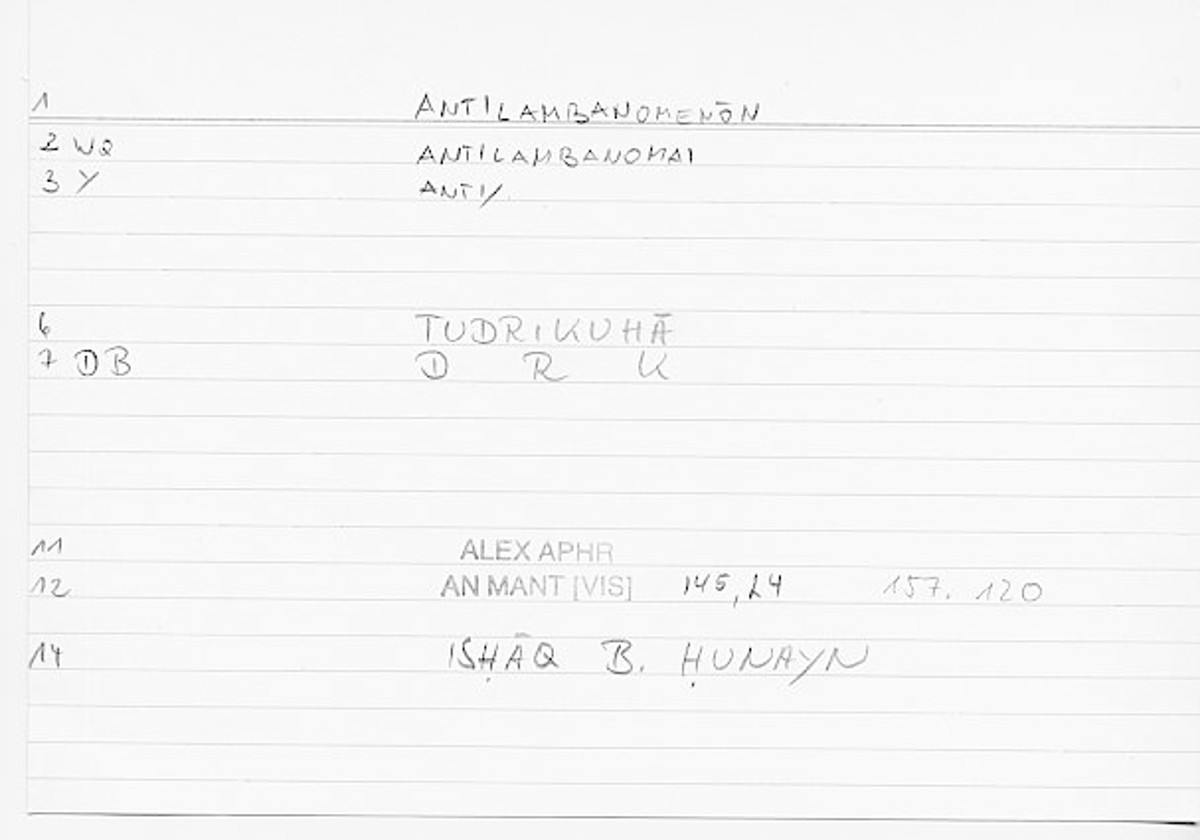 1 ANTILAMBANOMENŌN
2 WQ ANTILAMBANOMAI
3 Y ANTI/
6 TUDRIKUHĀ
7 DB D R K
11 ALEX APHR
12 AN MANT [VIS] 145,24 157. 120
14 ISḤĀQ B. ḤUNAYN